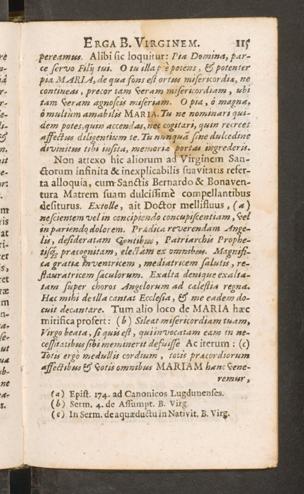 ERGA B. VIRGINEM. 115
pereamus. Alibi sic loquitur: Pia Domina, par-
ce servo Filij tui. O tu illa, è potens, & potenter
pia MARIA, de qua fons est ortus misericordiæ, ne
contineas, precor tam veram misericordiam, ubi
tam veram agnoscis miseriam. O pia, ô magna,
ô multùm amabilis MARIA. Tu ne nominari qui-
dem potes, quin accendas, nec cogitari, quin recrees
affectus diligentium te. Tu nunquā sine dulcedine
divinitus tibi insita, memoriæ portas ingrederis.
Non attexo hic aliorum ad Virginem San-
ctorum infinita & inexplicabilis suavitatis refer-
ta alloquia, cum Sanctis Bernardo & Bonaven-
tura Matrem suam dulcissimè compellantibus
desiturus. Extolle, ait Doctor mellifluus, (a)
nescientem vel in concipiendo concupiscentiam, vel
in pariendo dolorem. Prædica reverendam Ange-
lis, desideratam Gentibus, Patriarchis Prophe-
tisq́, præcognitam, electam ex omnibus. Magnifi-
ca gratiæ Inventricem, mediatricem salutis, re-
stauratricem sæculorum. Exalta denique exalta-
tam super choros Angelorum ad cælestia regna.
Hæc mihi de illa cantat Ecclesia, & me eadem do-
cuit decantare. Tum alio loco de MARIA hæc
mirifica profert: (b) Sileat misericordiam tuam,
Virgo beata, si quis est, qui invocatam eam in ne-
cessitatibus sibi meminerit defuisse Ac iterum: (c)
Totis ergò medullis cordium, totis præcordiorum
affectibus & votis omnibus MARIAM hanc vene-
remur,
(a) Epist. 174. ad Canonicos Lugdunenses.
(b) Serm. 4. de Assumpt. B. Virg.
(c) In Serm. de aquæductu in Nativit. B. Virg.